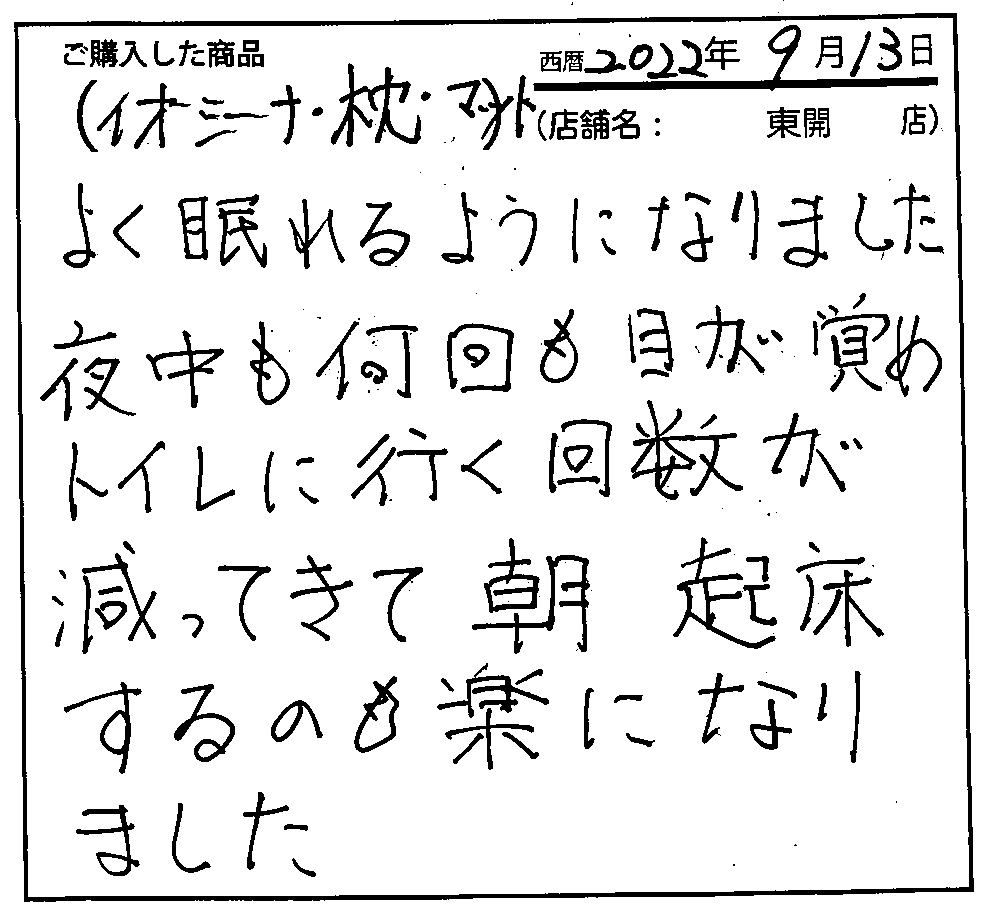 ご購入した商品
西暦2022年 9月13日
(イオミーナ・枕・マット
(店舗名: 東開 店)
よく眠れるようになりました
夜中も何回も目が覚め
トイレに行く回数が
減ってきて 朝 起床
するのも楽になり
ました